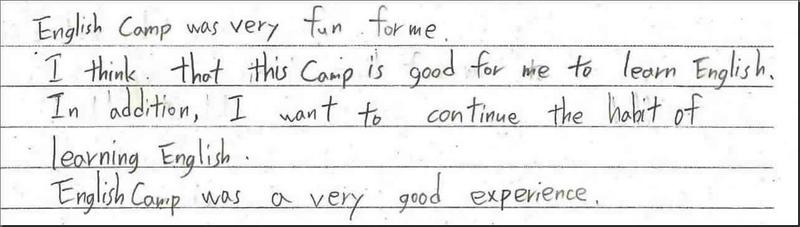 English Camp was very fun for me.
I think. that this Camp is good for me to learn English.
In addition, I want to continue the habit of
learning English.
English Camp was a very good experience.